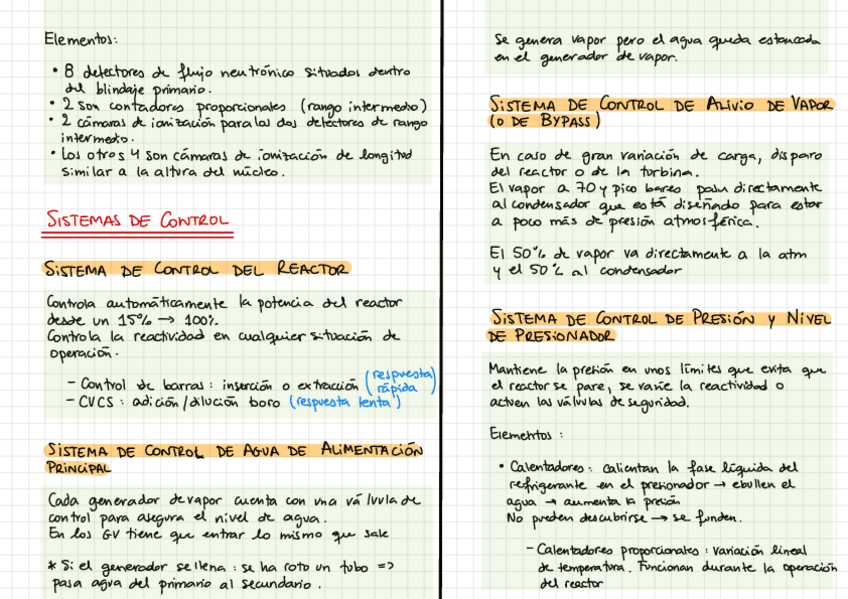 Elementos:
• 8 detectores de flujo neutrónico situados dentro
del blindaje primario.
• 2 son contadores proporcionales (rango intermedio)
• 2 cámaras de ionización para los dos detectores de rango
intermedio.
• Los otros 4 son cámaras de ionización de longitud
similar a la altura del núcleo.
SISTEMAS DE CONTROL
SISTEMA DE CONTROL DEL REACTOR
Controla automáticamente la potencia del reactor
desde un 15% → 100%.
Controla la reactividad en cualquier situación de
operación.
- Control de barras: inserción o extracción (respuesta rápida)
- CVCS: adición/dilución boro (respuesta lenta)
SISTEMA DE CONTROL DE AGUA DE ALIMENTACIÓN
PRINCIPAL
Cada generador de vapor cuenta con una válvula de
control para asegura el nivel de agua.
En los GV tiene que entrar lo mismo que sale
* Si el generador se llena: se ha roto un tubo =>
pasa agua del primario al secundario.
Se genera vapor pero el agua queda estancada
en el generador de vapor.
SISTEMA DE CONTROL DE ALIVIO DE VAPOR
(O DE BYPASS)
En caso de gran variación de carga, disparo
del reactor o de la turbina.
El vapor a 70 y pico bares pasa directamente
al condensador que está diseñado para estar
a poco más de presión atmosférica.
El 50% de vapor va directamente a la atm
y el 50% al condensador
SISTEMA DE CONTROL DE PRESIÓN Y NIVEL
DE PRESIONADOR
Mantiene la presión en unos límites que evita que
el reactor se pare, se varíe la reactividad o
actúen las válvulas de seguridad.
Elementos:
• Calentadores: calientan la fase líquida del
refrigerante en el presionador → ebullen el
agua → aumenta la presión
No pueden descubrirse → se funden.
- Calentadores proporcionales: variación lineal
de temperatura. Funcionan durante la operación
del reactor